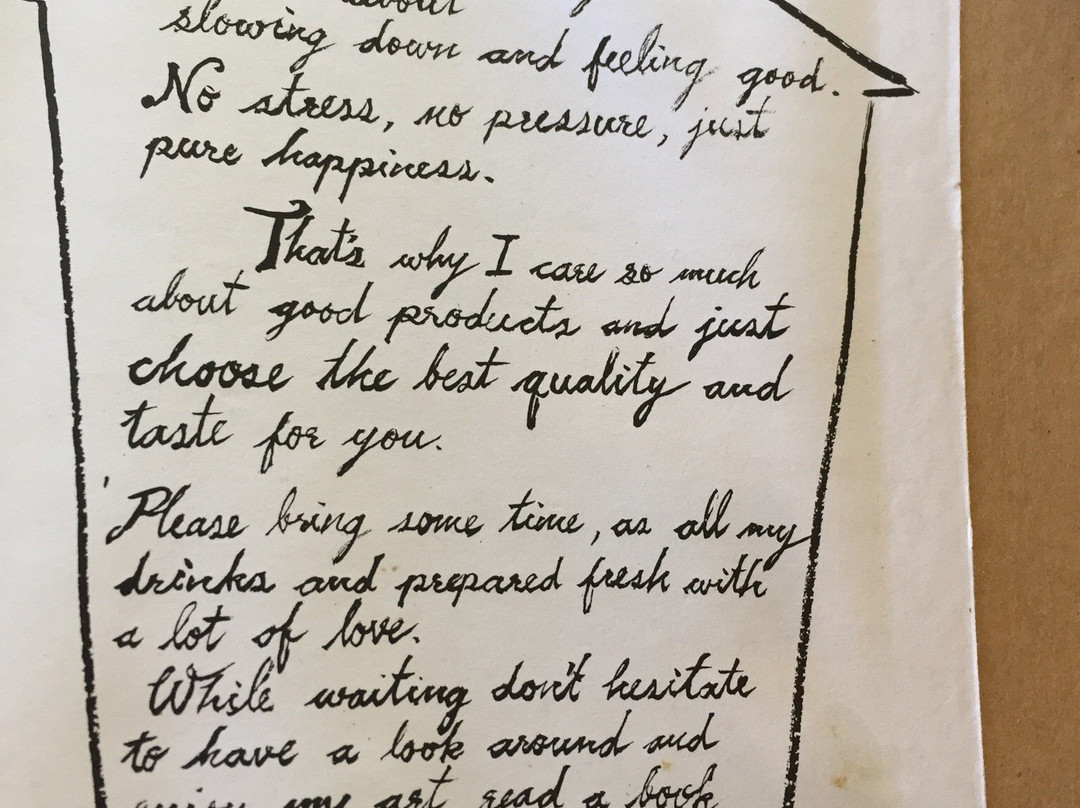 about
slowing down and feeling good.
No stress, no pressure, just
pure happiness.
That's why I care so much
about good products and just
choose the best quality and
taste for you.
Please bring some time, as all my
drinks and prepared fresh with
a lot of love.
While waiting don't hesitate
to have a look around and
enjoy my art read a book